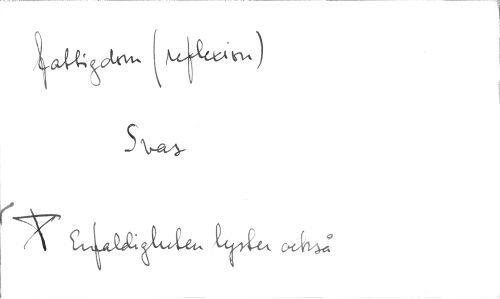 fattigdom (reflexion)
Svar
Enfaldigheten lyster också